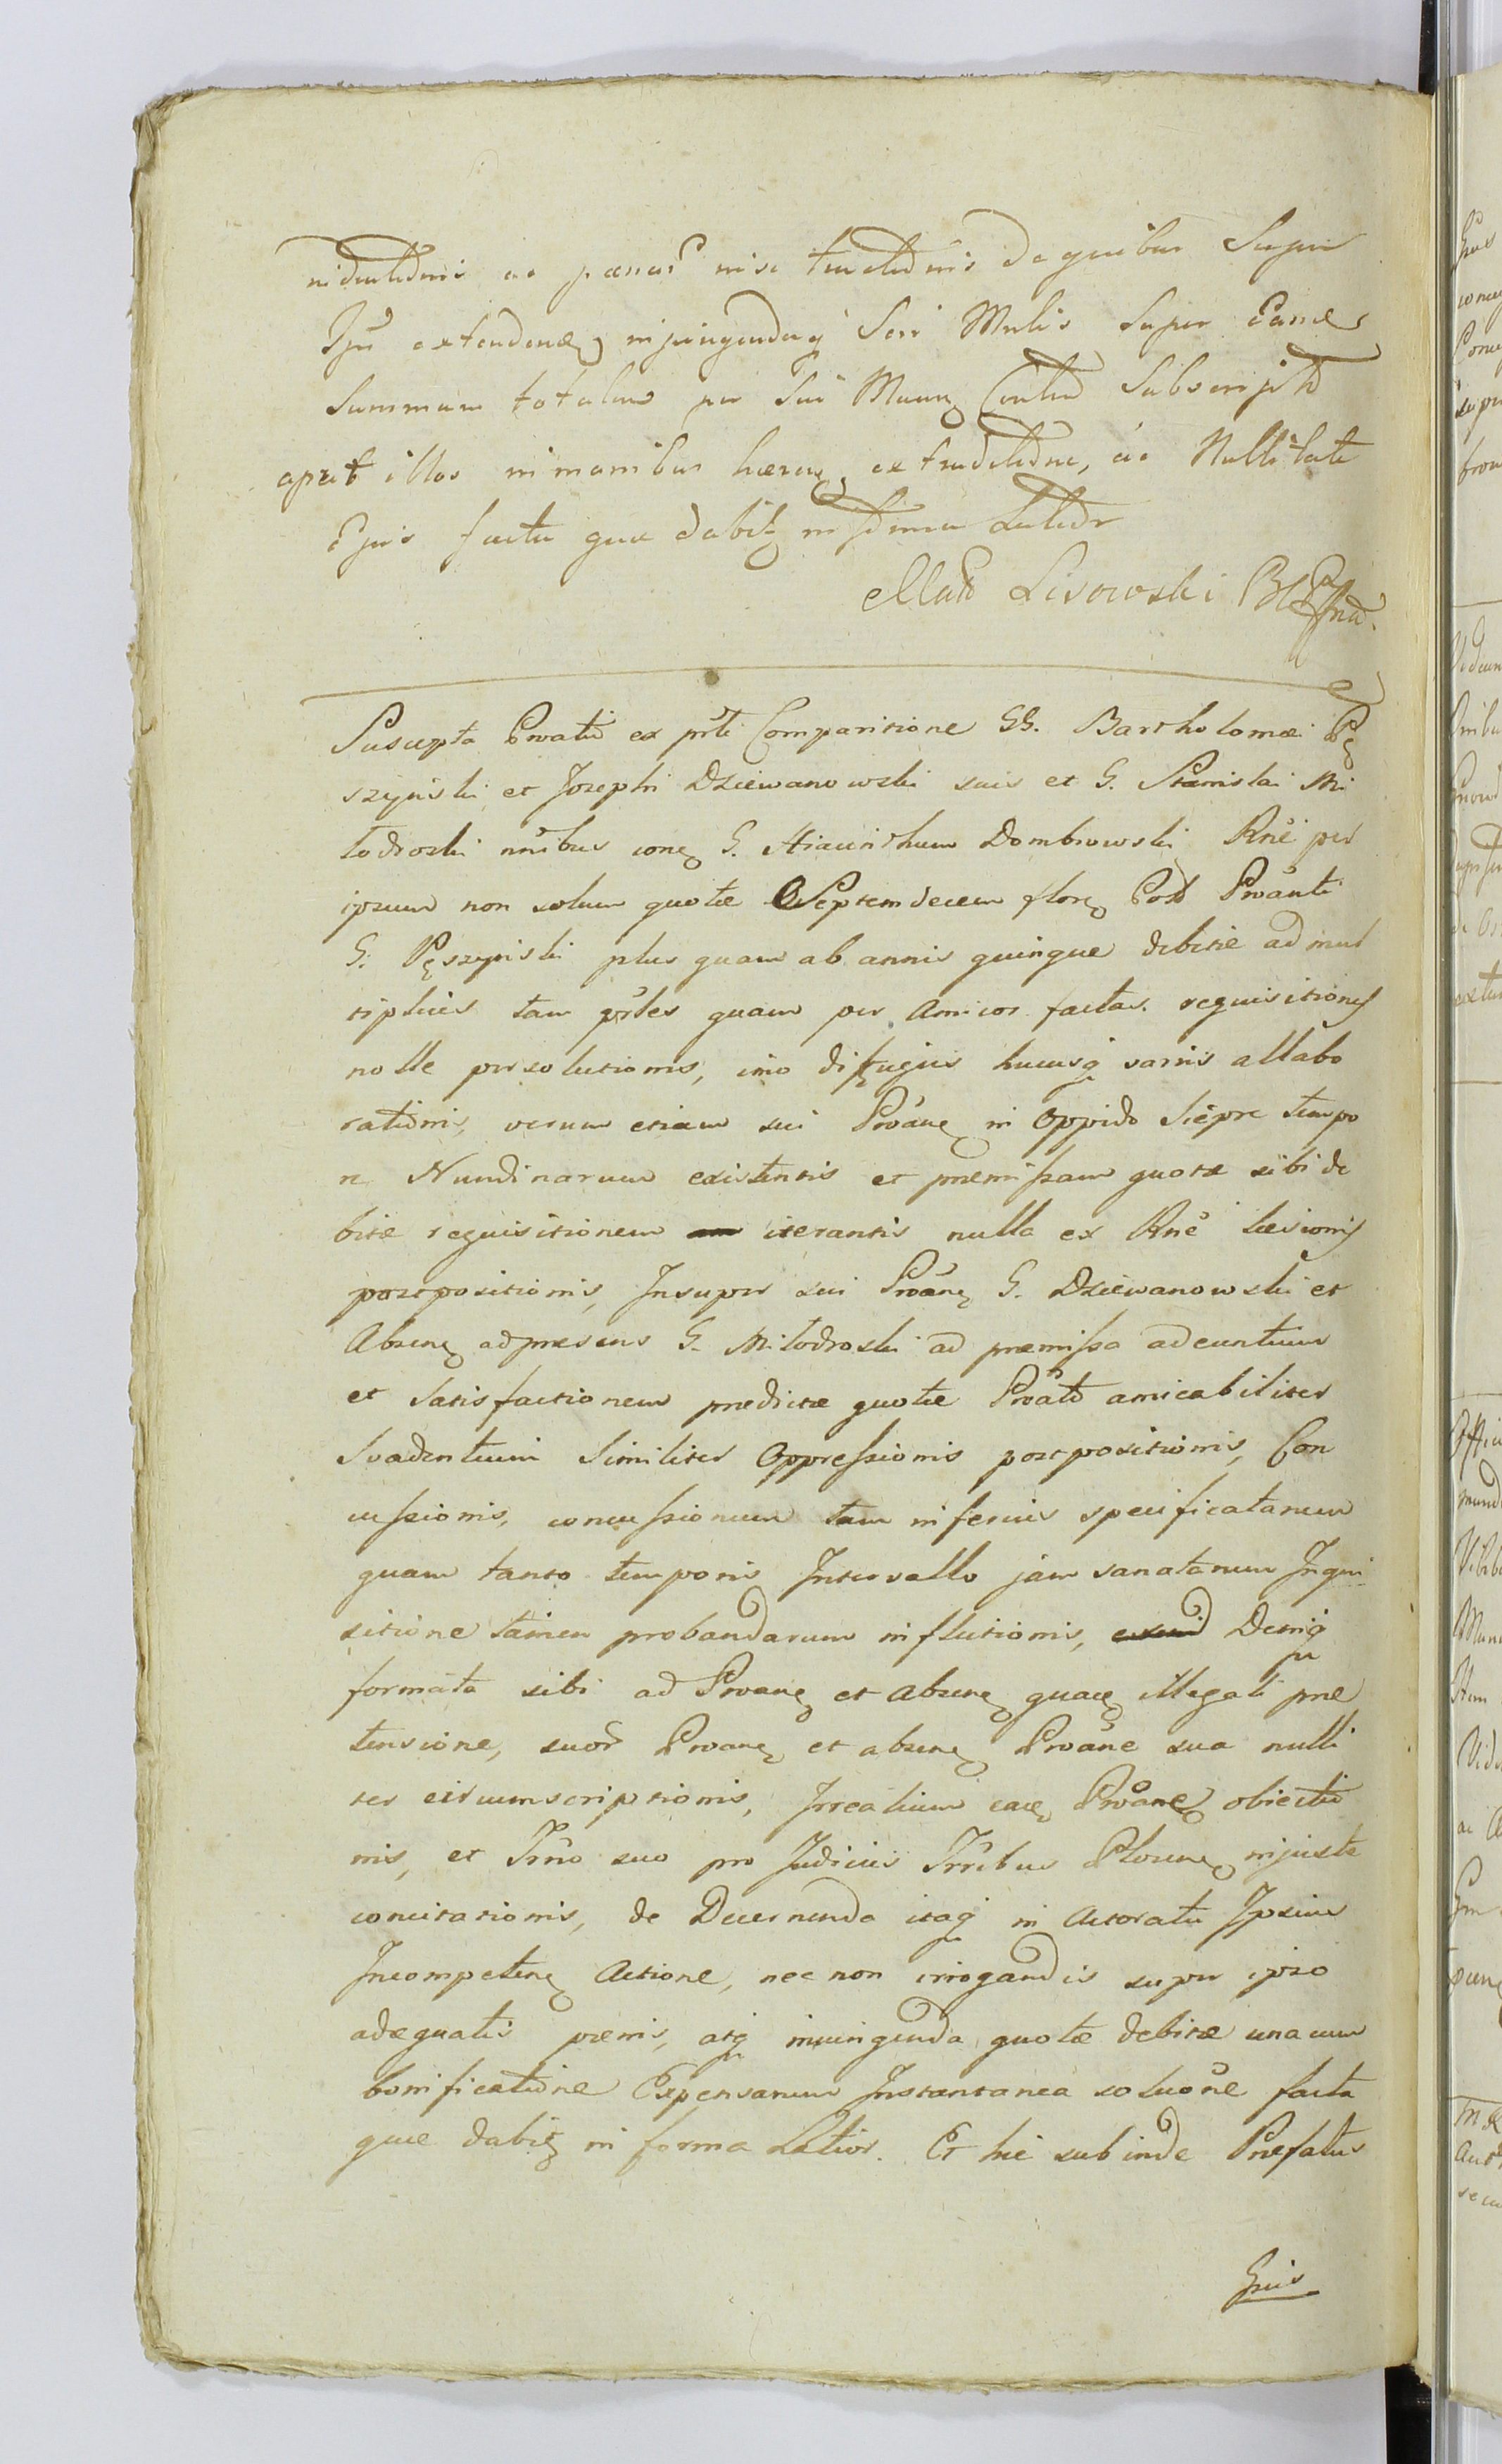 ac pænar nisi de quibus Super
extendend injungendaq Seu Mulis Super Eandem
Summam totalem per Sui Manu Subscript
aprt illos in manibus ac Nullitate
Ejus facta quæ dabit in
Lisowski
Suscepta Proatu ex prti Comparitione GG. Bartholomæi Pę
szyński et Josephi Dziewanowski suis et G. Stanislai Mi
łodroski nnibus cone G. Hiacinthum Dombrowski Rnë per
ipsum non solum quotæ Septemdecem flor Pol Proanti
G. Pęszyński plus quam ab annis quinque debitæ ad mul
tiplices tam prles quam per Amicos factas requisitiones
nolle persolutionis, imo difugiis hucusq variis allabo
rationis, verum etiam sui Proane in Oppido Sierpc tempo
re Nundinarum existentis et præmissam quotæ sibi de
bitæ requisitionem iterantis nulla ex Rnë læsionis
postpositionis, Insuper sui Proane G. Dziewanowski et
Absene adpræsens G. Miłodroski ad præmissa adeuntium
et Satisfactionem prædictæ quotæ Proato amicabiliter
Svadentium Similiter Oppressionis postpositionis, Con
cussionis, concussionum tam inferius specificatarum
quam tanto temporis Intervallo jam sanatarum Inqui
sitione tamen probandarum inflictionis, Deniq
formata sibi ad Proane et absene quace illegali præ
tensione, suor Proane et absene Proane sua nulli
ter circumscriptionis, Irrealium eace Proane obiectio
nis, et Trno suo pro Judiciis Trribus Plocene injuste
concitationis, de Decernenda itaq in Actoratu Ipsius
Incompetene Actione, nec non irrogandis super ipso
adæquatis pænis, atq iniungenda quotæ debitæ una cum
bonificatione Expensarum Instantanea soluone facta
quæ dabit in forma Latior. Et hic subinde Præfatus
Gnis